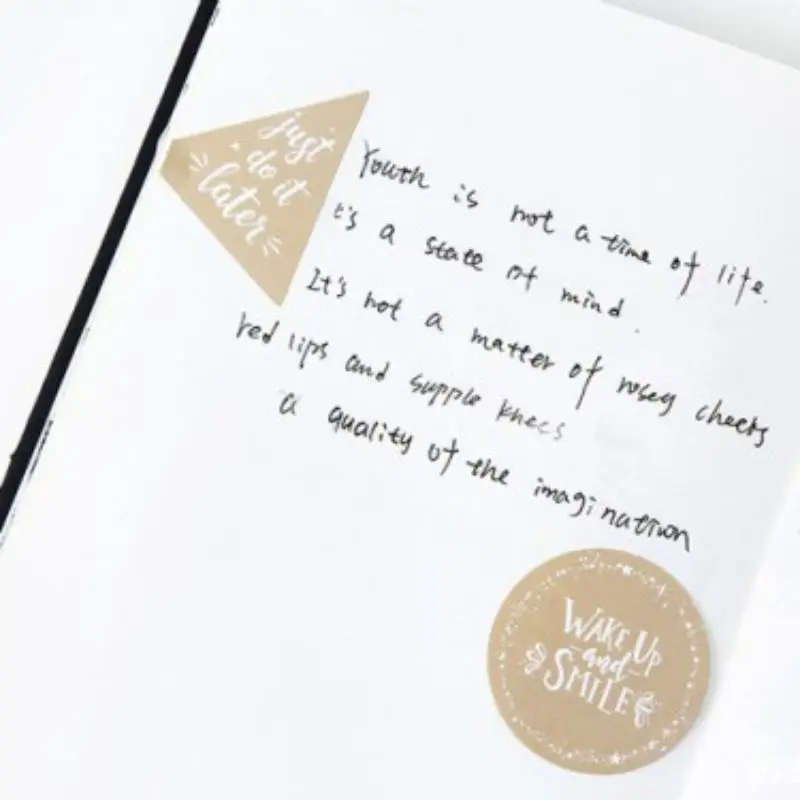 just
do it
later
Youth is not a time of life.
t's a state of mind.
It's not a matter of rosey cheeks
red lips and supple knees
a quality of the imagination
WAKE UP
and
SMILE